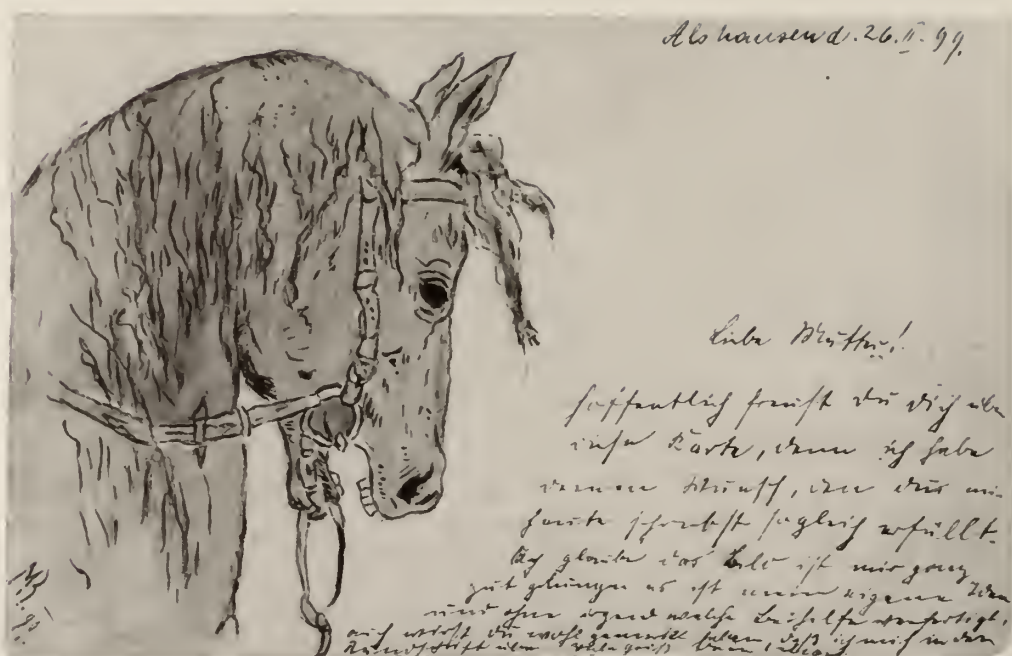 Alshausen d. 26.II.99.
Liebe Mutter!
Hoffentlich freust du dich über
diese Karte, denn ich habe
deinen Wunsch, den du mir
heute schreibst sogleich erfüllt.
Ich glaube das Bild ist mir ganz
gut gelungen es ist meine eigene Idee
und ohne irgend welche Beihilfe verfertigt,
auch wirst du wohl gemerkt haben, daß ich mich in der
Rundschrift übe